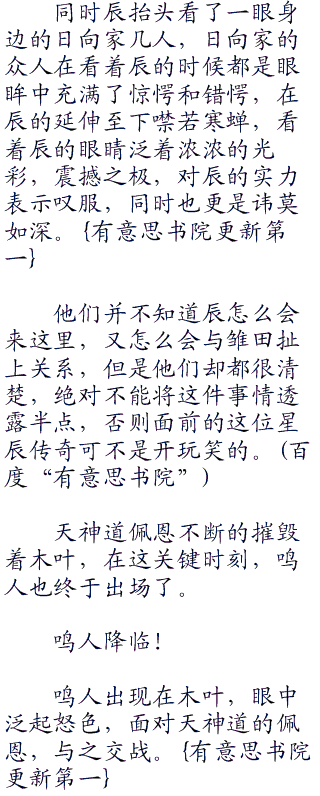 同时辰抬头看了一眼身
边的日向家几人，日向家的
众人在看着辰的时候都是眼
眸中充满了惊愕和错愕，在
辰的延伸至下噤若寒蝉，看
着辰的眼睛泛着浓浓的光
彩，震撼之极，对辰的实力
表示叹服，同时也更是讳莫
如深。{有意思书院更新第
一}
他们并不知道辰怎么会
来这里，又怎么会与雏田扯
上关系，但是他们却都很清
楚，绝对不能将这件事情透
露半点，否则面前的这位星
辰传奇可不是开玩笑的。(百
度“有意思书院”)
天神道佩恩不断的摧毁
着木叶，在这关键时刻，鸣
人也终于出场了。
鸣人降临！
鸣人出现在木叶，眼中
泛起怒色，面对天神道的佩
恩，与之交战。{有意思书院
更新第一}